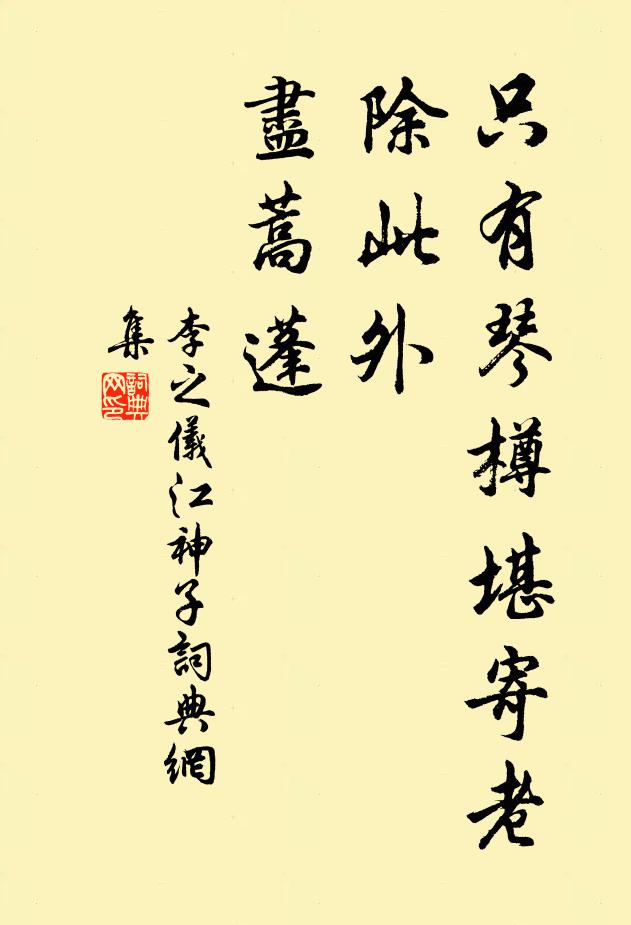 只有琴樽堪寄老
除此外
盡蒿蓬
李之儀江神子詞典網
集
詞典
网印